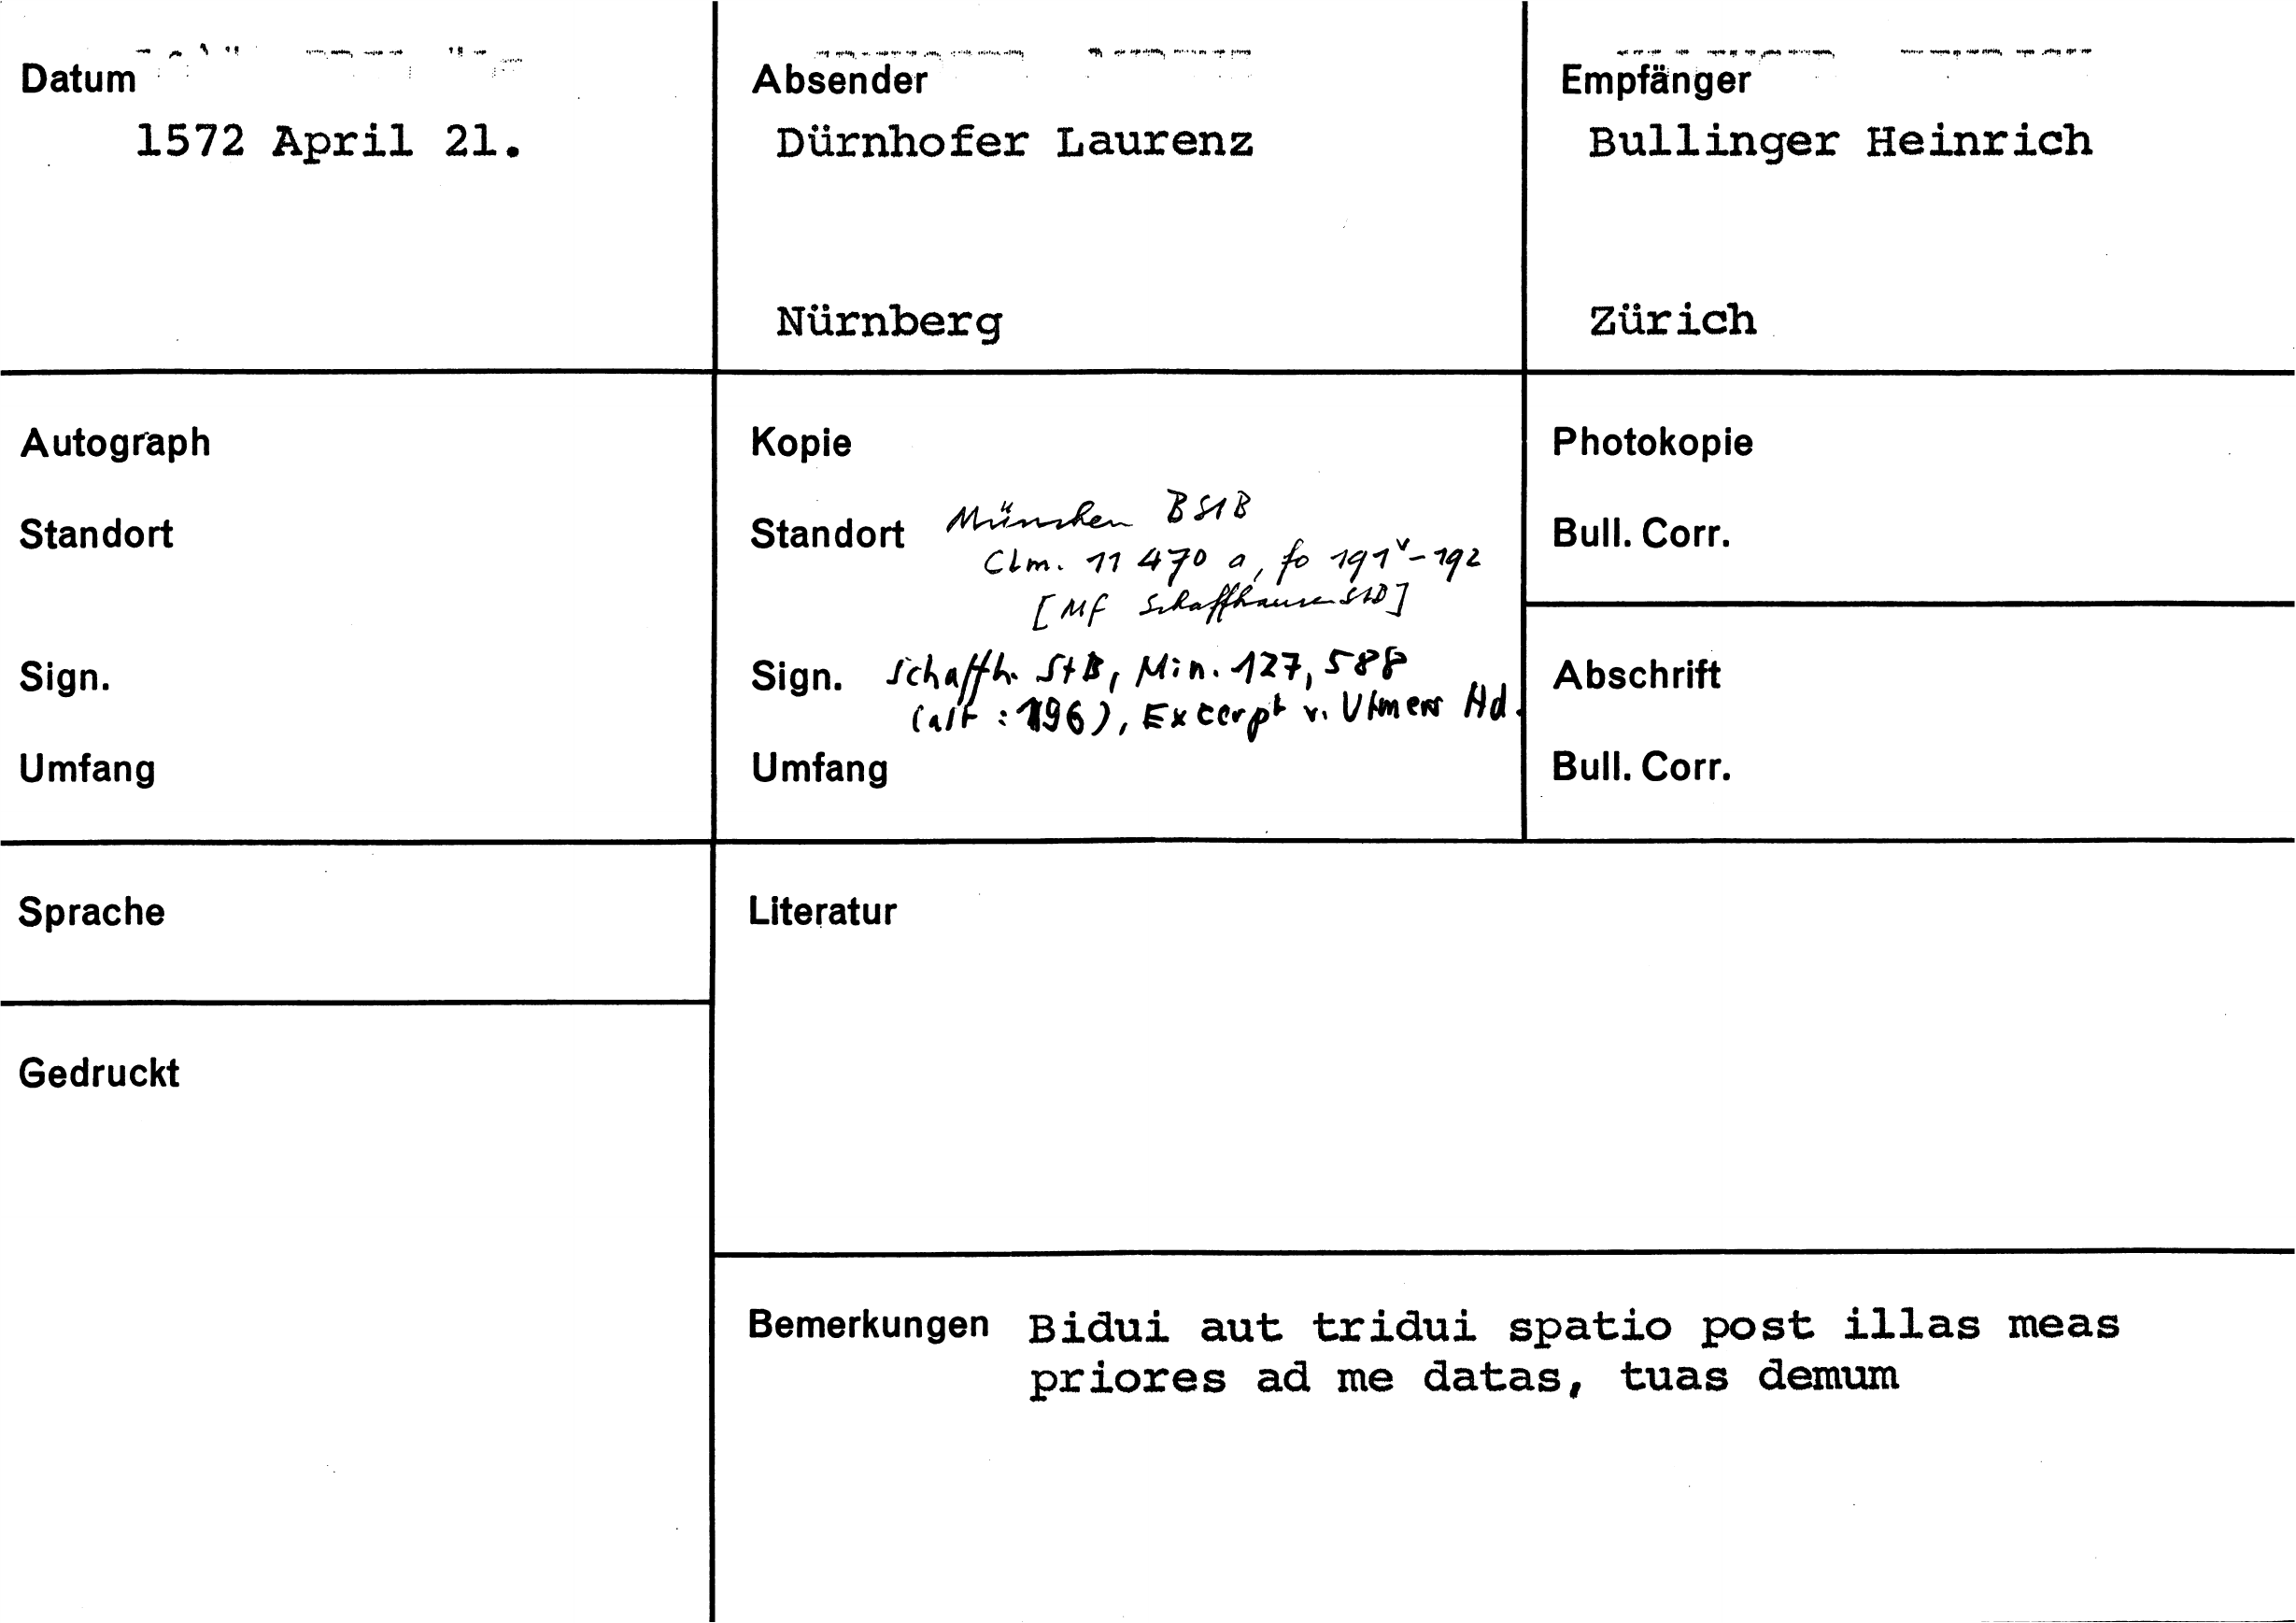 Datum
1572 April 21.
Absender
Dürnhofer Laurenz
Nürnberg
Empfänger
Bullinger Heinrich
Zürich
Autograph
Standort
Sign.
Umfang
Kopie
Standort München BStB
Clm. 11 470 a, fo 191v-192
[MF Schaffhausen StB]
Sign. Schaffh. StB, Min. 127, 588
(alt : 196), Excerpt v. Ulmers Hd.
Umfang
Photokopie
Bull. Corr.
Abschrift
Bull. Corr.
Sprache
Gedruckt
Literatur
Bemerkungen Bidui aut tridui spatio post illas meas
priores ad me datas, tuas demum